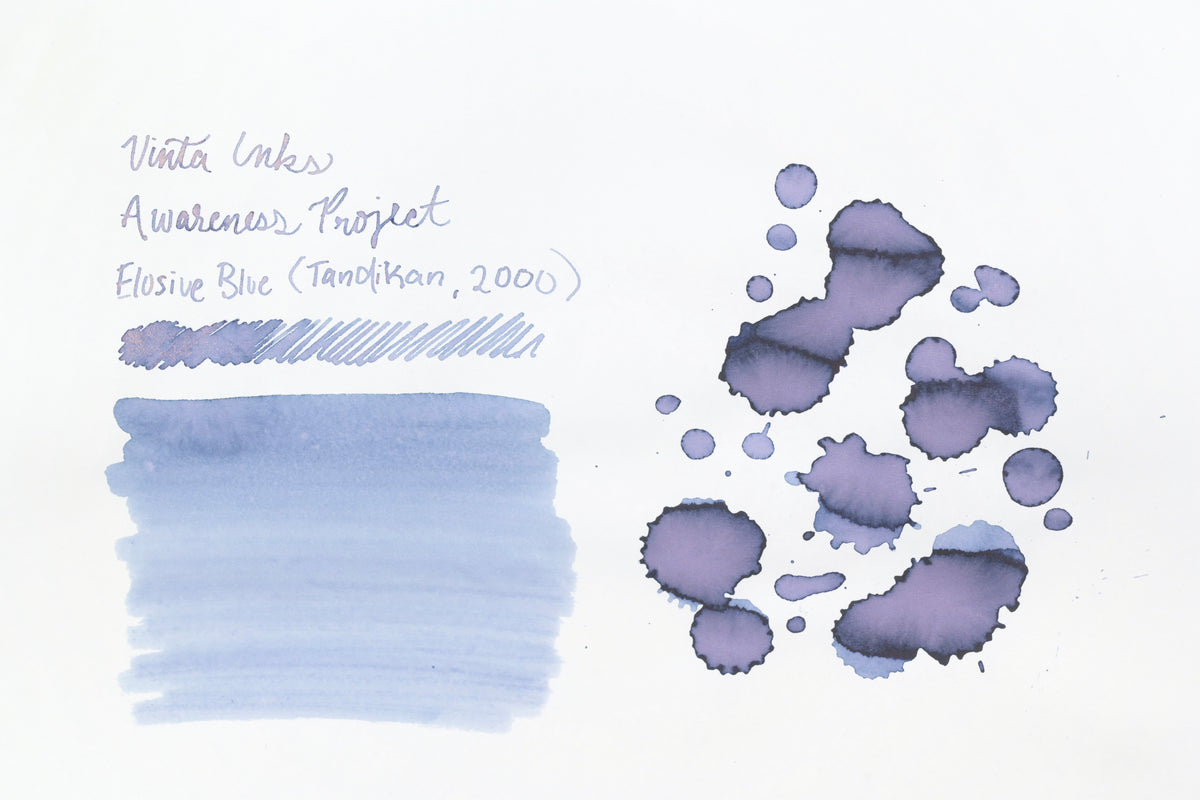 Vinta Inks
Awareness Project
Elusive Blue (Tandikan, 2000)